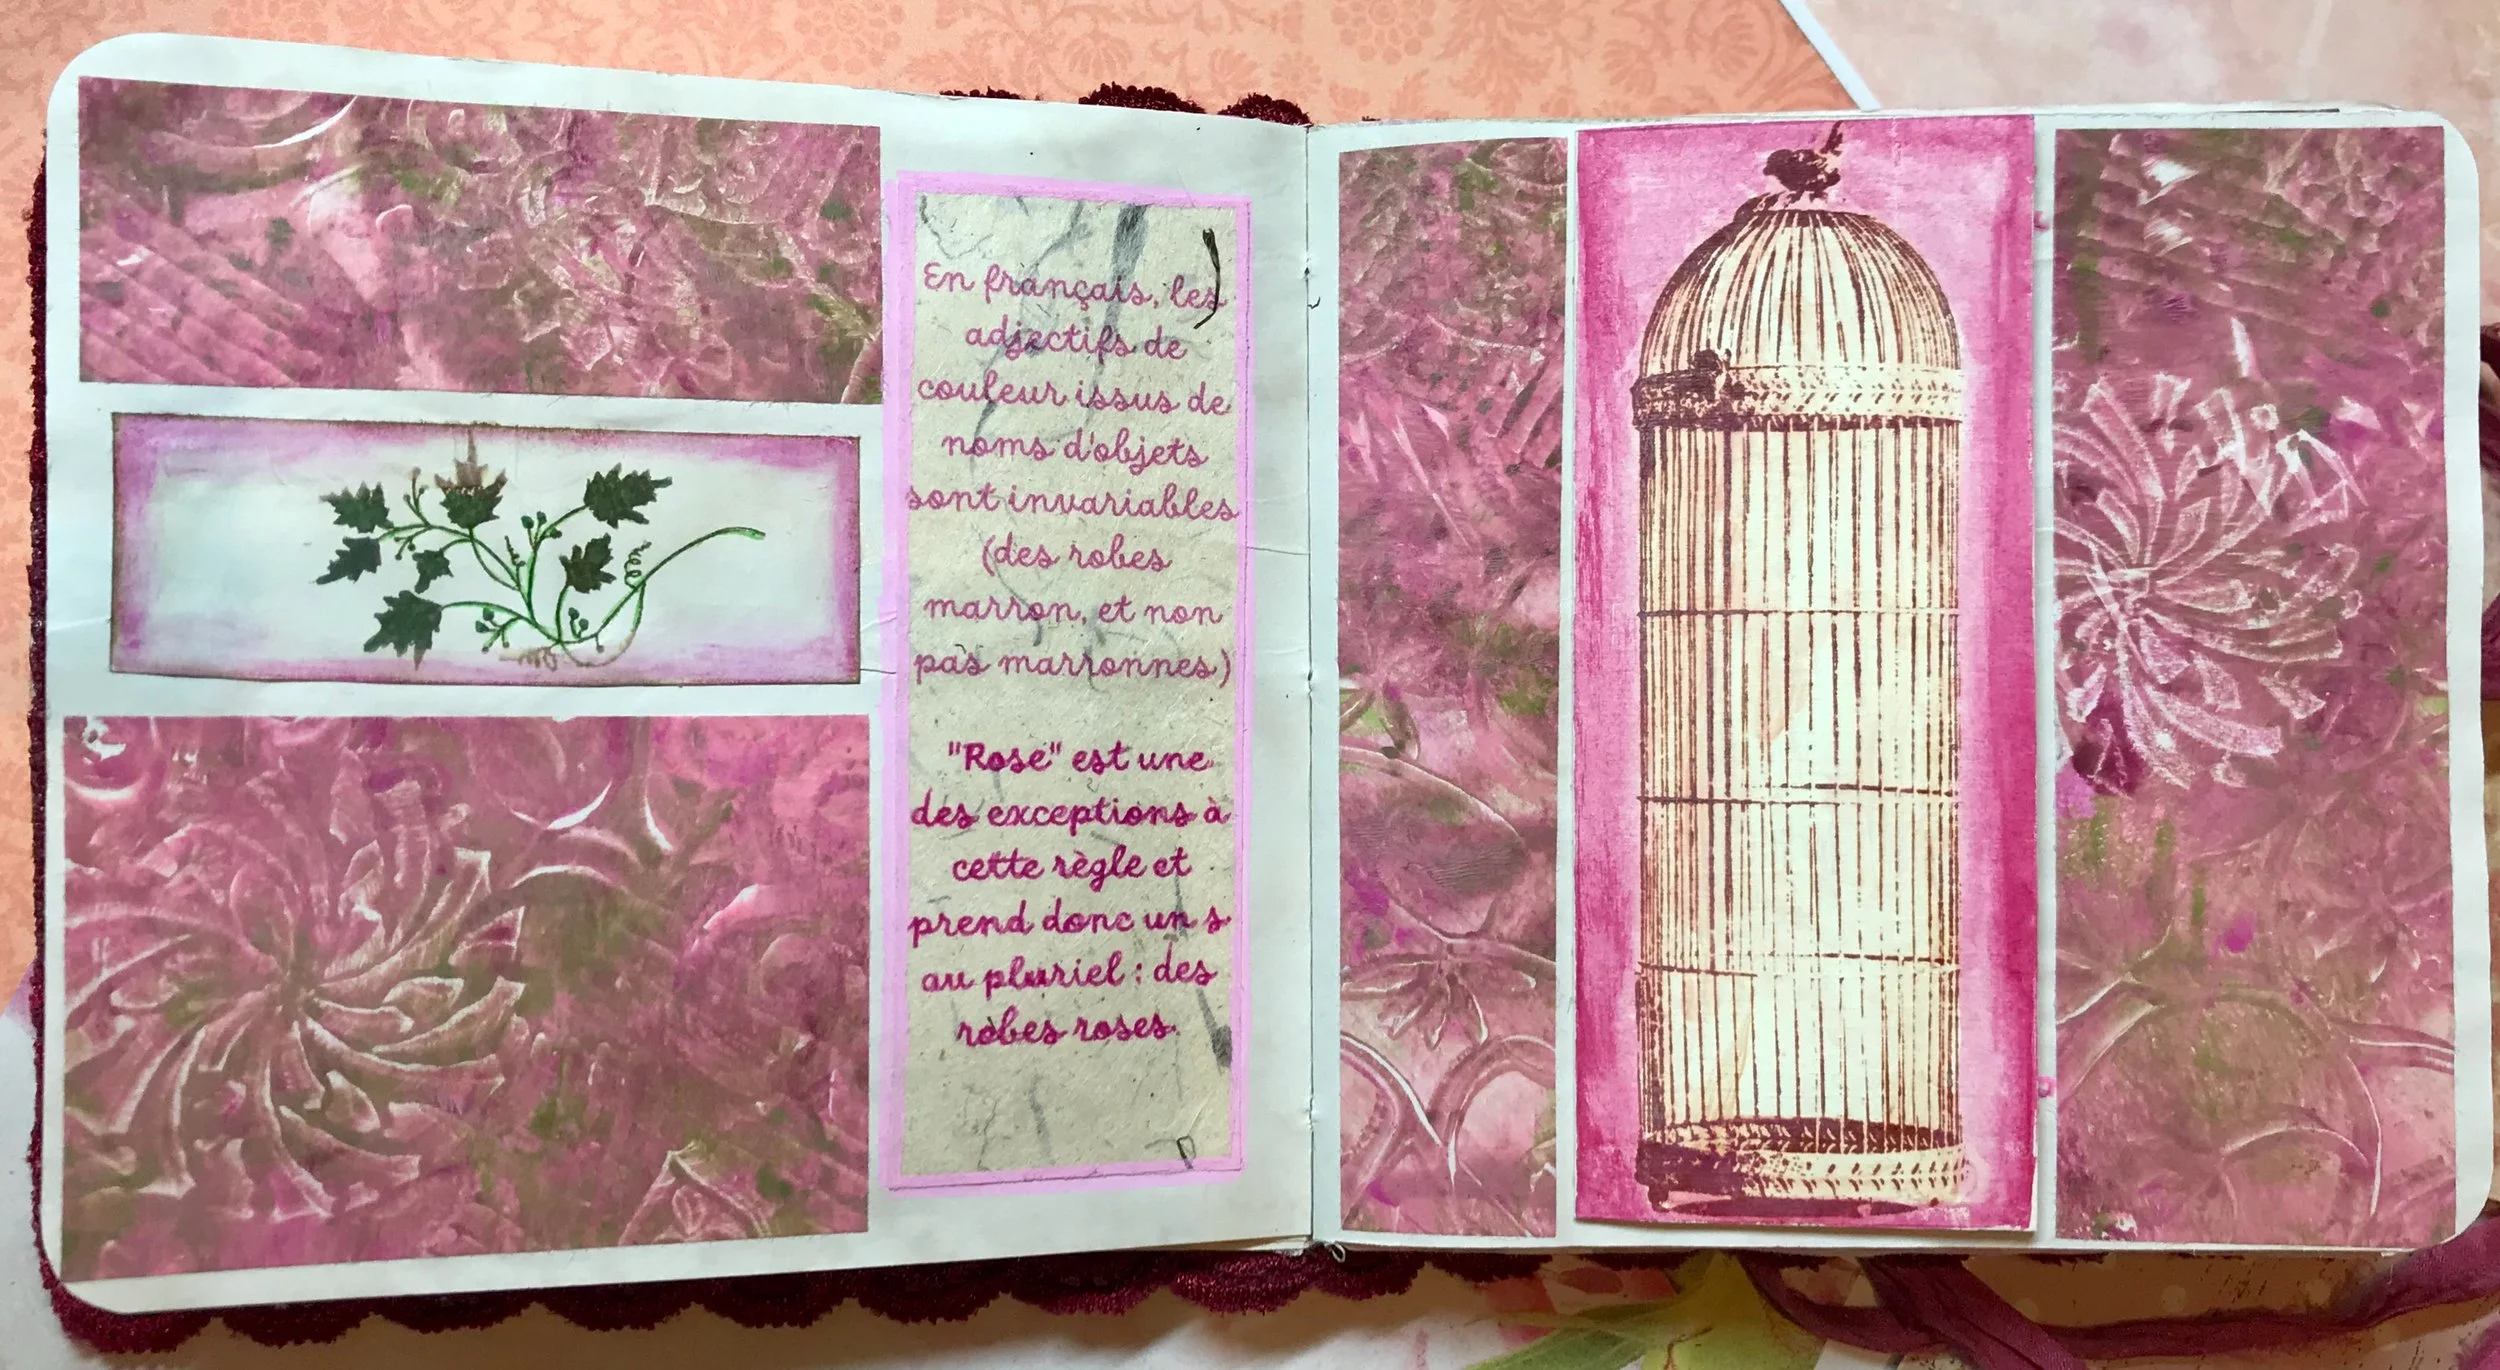 En français, les
adjectifs de
couleur issus de
noms d'objets
sont invariables
(des robes
marron, et non
pas marronnes)
"Rose" est une
des exceptions à
cette règle et
prend donc un s
au pluriel : des
robes roses.